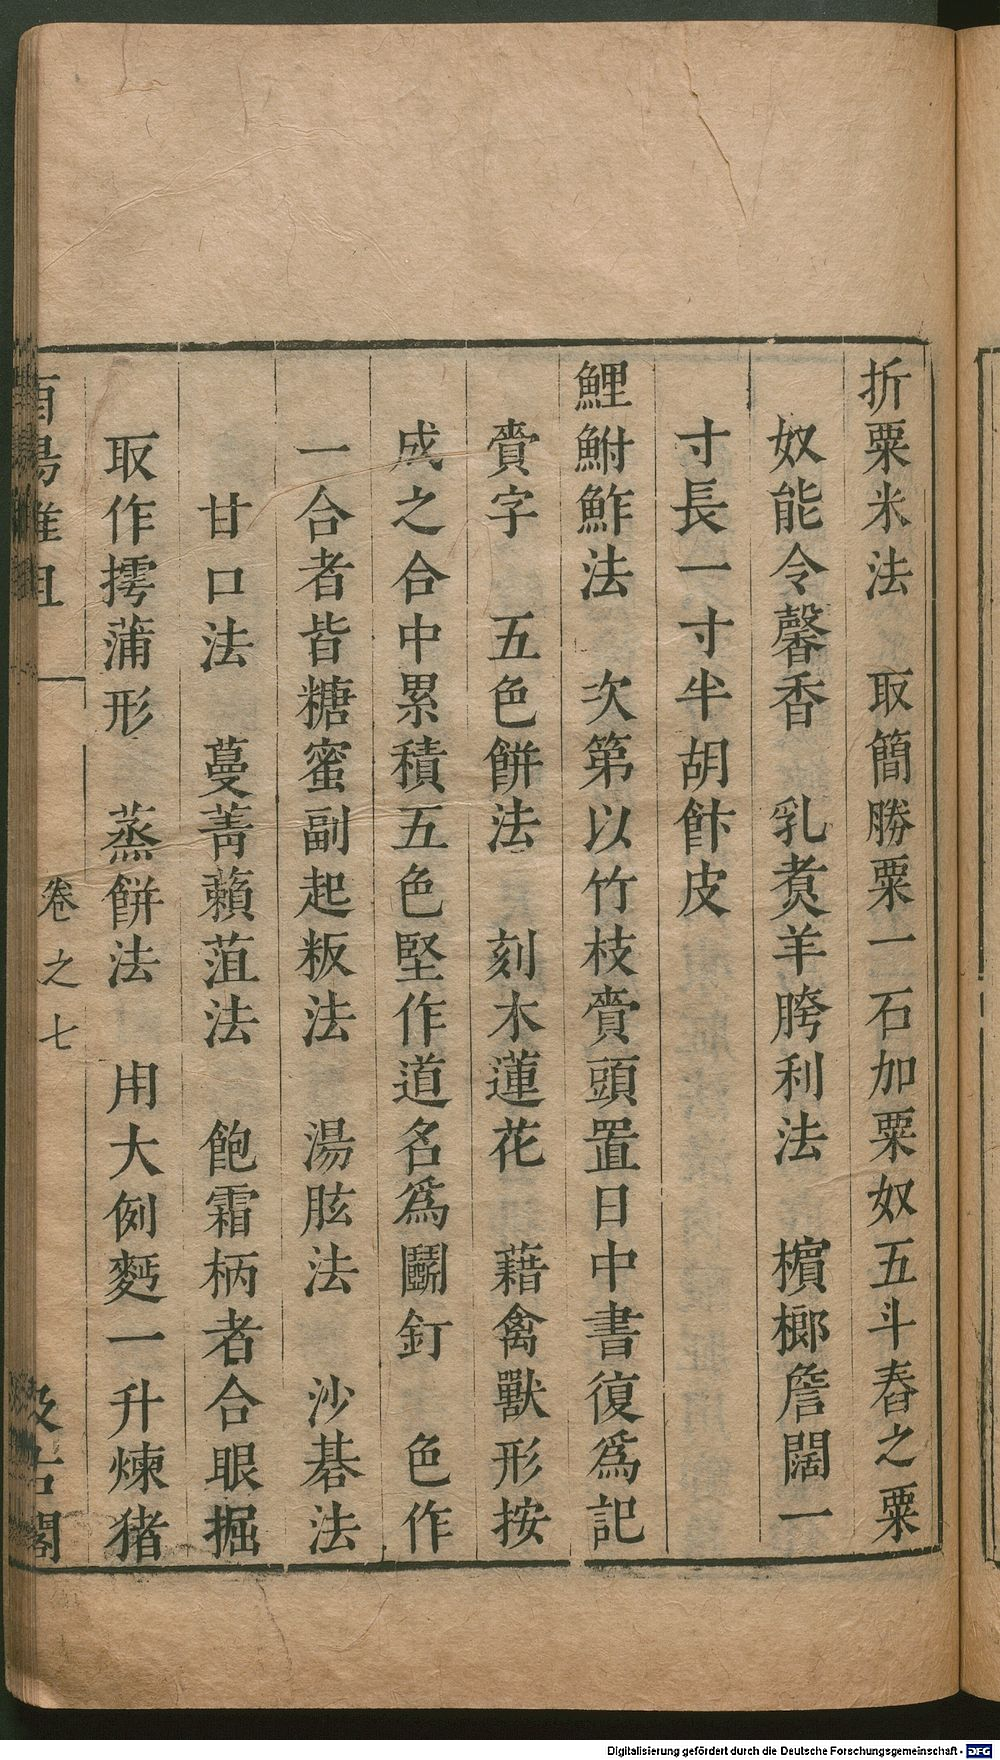 折粟米法　取簡勝粟一石加粟奴五斗舂之粟
奴能令馨香　乳煑羊胯利法　檳榔詹闊一
寸長一寸半胡飰皮
鯉鮒鮓法　次第以竹枝賫頭置日中書復爲記
賫字　五色餅法　刻木蓮花　藉禽獸形按
成之合中累積五色竪作道名爲鬭釘　色作
一合者皆糖蜜副起粄法　湯胘法　沙碁法
甘口法　蔓菁蘱菹法　飽霜柄者合眼掘
取作摴蒲形　蒸餅法　用大例麫一升煉猪
酉陽雜俎　卷之七　汲古閣
Digitalisierung gefördert durch die Deutsche Forschungsgemeinschaft - DFG